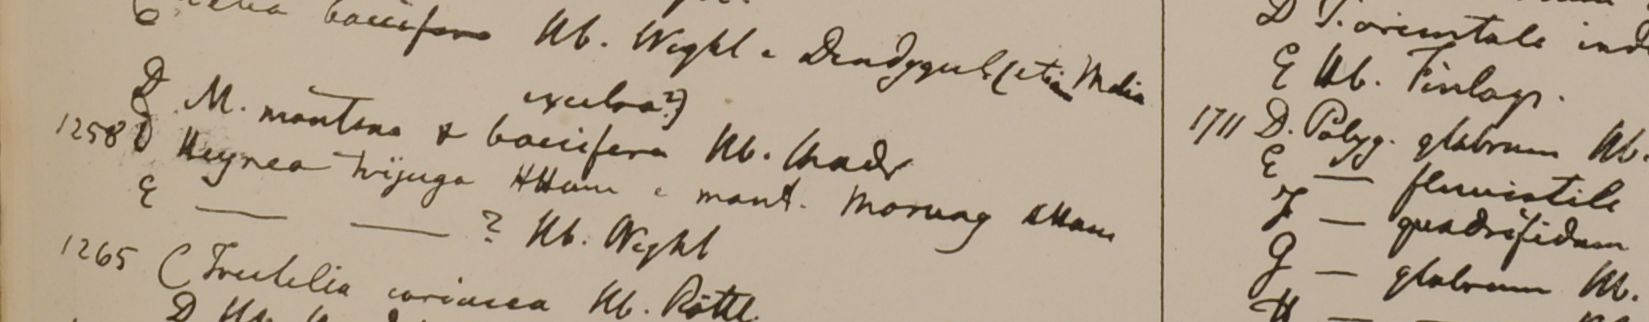 baccifera Hb. Wight e Dendygul (etiam Melia
excelsa?)
D M. montana & baccifera Hb. Madr
1258 D Heynea trijuga HHam e mont. Morung HHam
E — — ? Hb. Wight
1265 C Turtelia coriacea Hb. Rottl.
D Hb.
D P. orientale
E Hb. Finlays.
1711 D. Polyg. glabrum Hb.
E — fluviatile
F — quadrifidum
G — glabrum Hb.
H —